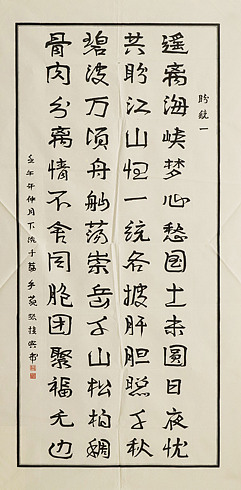 盼统一
遥离海峡梦心愁国土未圆日夜忧
共盼江山恒一统各披肝胆照千秋
碧波万顷舟舫荡崇岳千山松柏稠
骨肉分离情不舍同胞团聚福无边
壬午年仲月下浣于